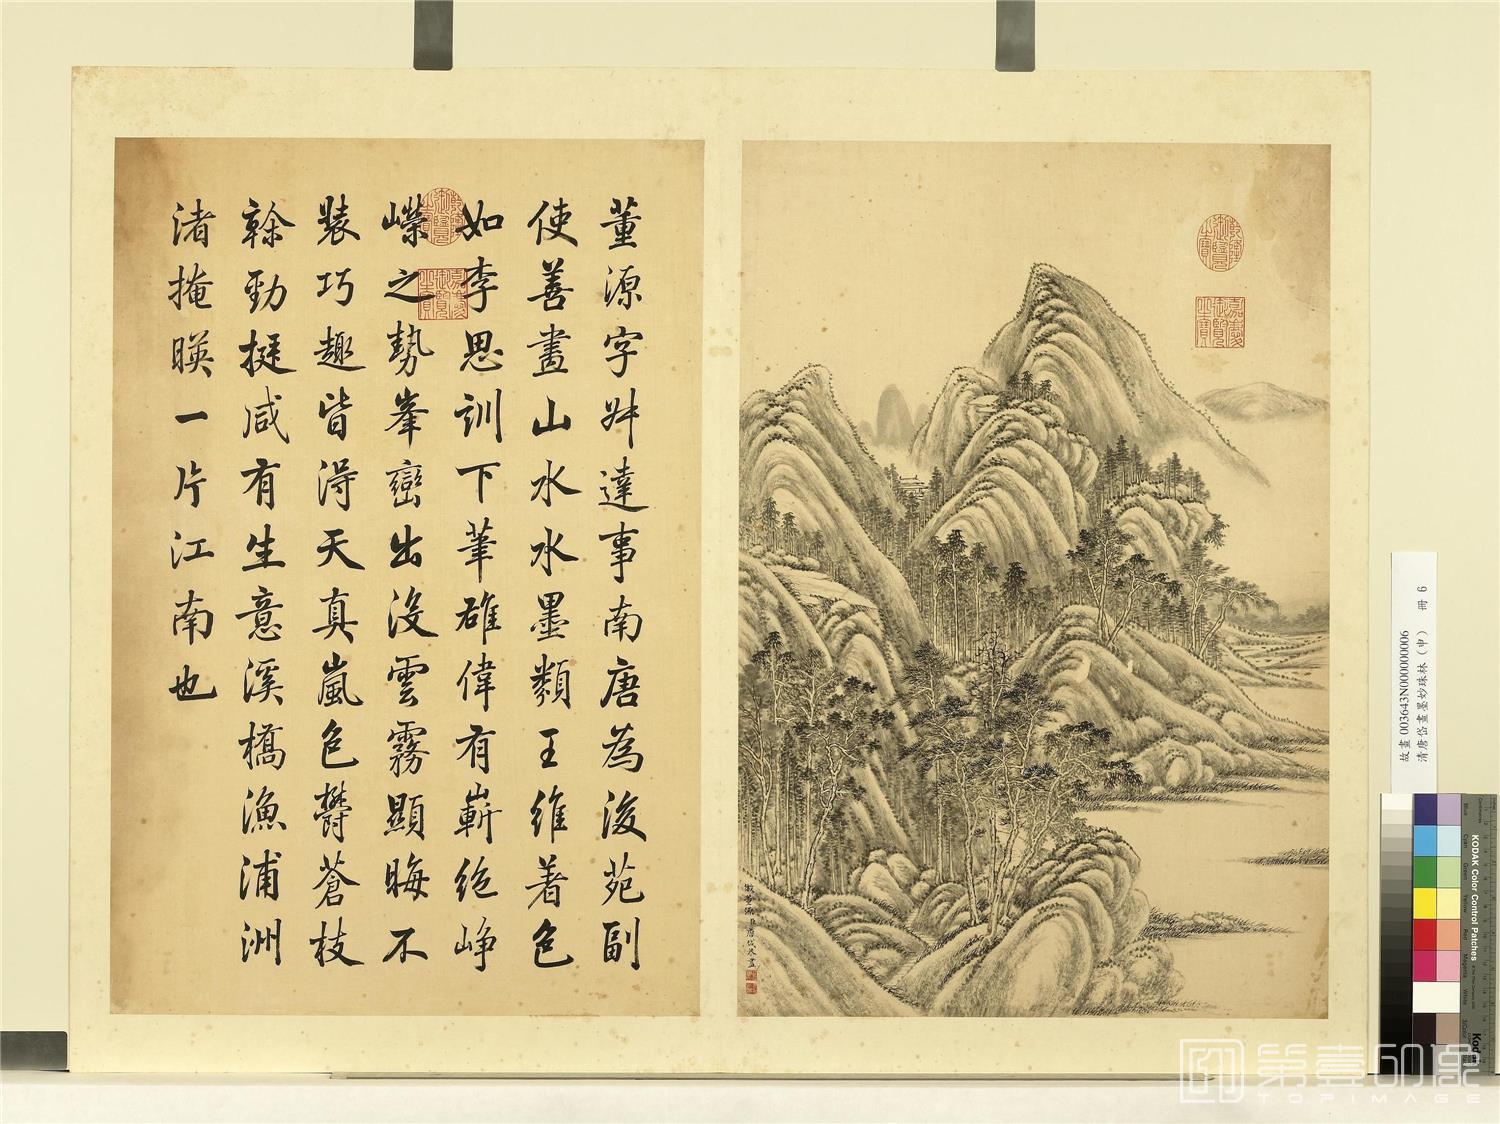 董源字叔達事南唐為後苑副
使善畫山水水墨類王維着色
如李思訓下筆雄偉有嶄絕崢
嶸之勢峯巒出沒雲霧顯晦不
裝巧趣皆得天真嵐色鬱蒼枝
榦勁挺咸有生意溪橋漁浦洲
渚掩暎一片江南也
乾隆御覽之寶
嘉慶御覽之寶
乾隆御覽之寶
嘉慶御覽之寶
倣董源 臣唐岱恭畫
故畫 003643N000000006
清唐岱畫墨妙珠林（申） 冊 6
KODAK Color Control Patches
Kodak
第壹印象
TOPIMAGE